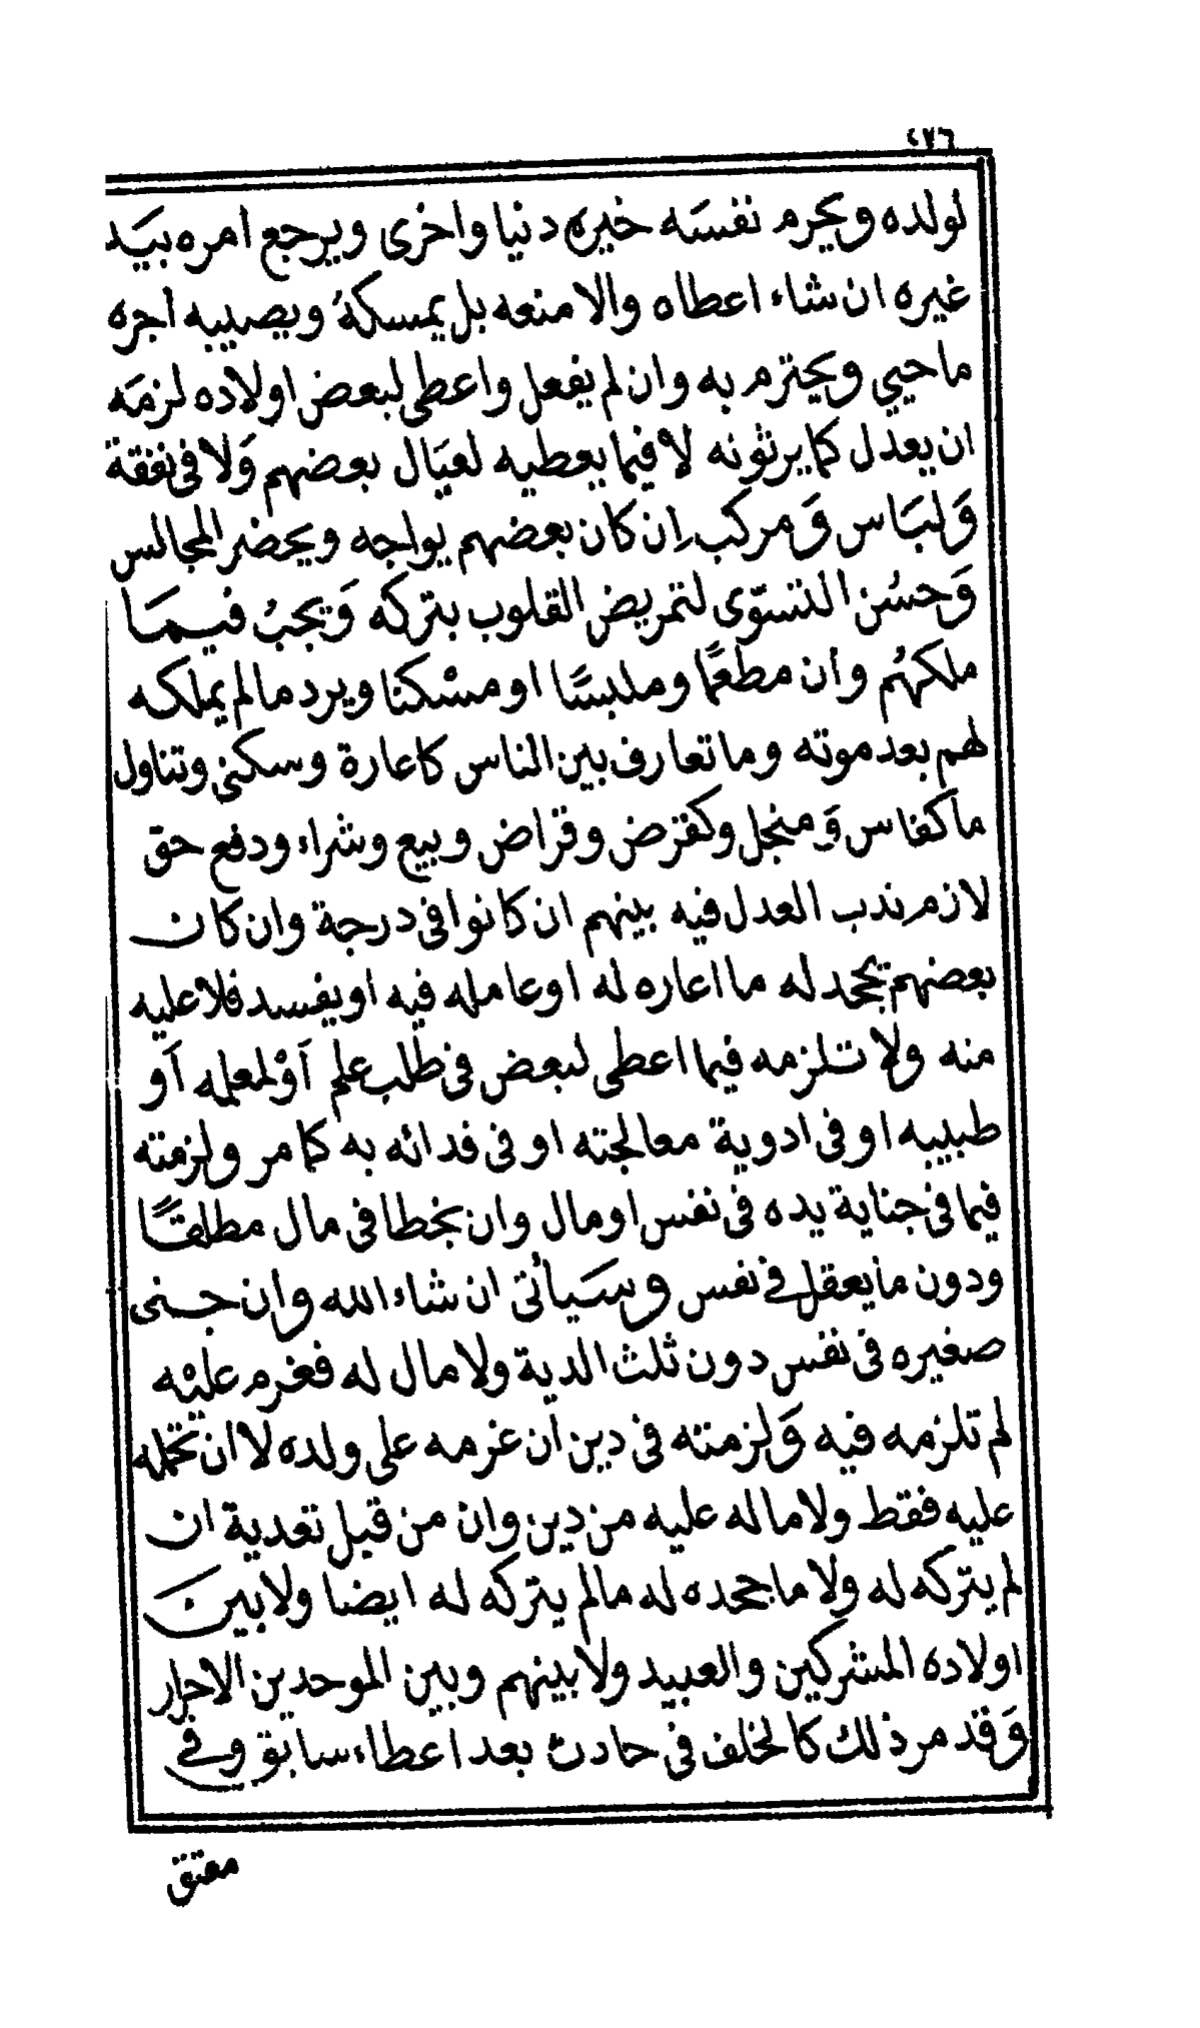 ٤٧٦
لولده ويحرم نفسَه خيره دنيا واخرى ويرجع امره بيَد
غيره ان شاء اعطاه والا منعه بل يمسكهُ ويصيبه أجره
ما حيي ويحترم به وان لم يفعل واعطى لبعض اولاده لزمَه
ان يعدل كما يرثونه لا فيما يعطيه لعيَال بعضهم وَلا فى نفقة
وَلبَاس وَمركب اِن كان بعضهم يواجه ويحضر المجالس
وَحسُن التستوّى لتمريض القلوب بتركه وَيجبُ فيمَا
ملكهُم وأن مطعمًا وملبسًا او مسْكنا ويرد ما لم يملكه
لهم بعد موته وما تعارف بين الناس كاعارة وسكنى وتناول
ما كفاس وَمنجل وكقرض وقراض وبيع وشراء ودفع حق
لازم ندب العدل فيه بينهم ان كانوا فى درجة وان كان
بعضهم يجحد له ما اعاره له او عامله فيه او يفسد فلا عليه
منه ولا تلزمه فيما اعطى لبعض فى طلب علم أوْ لمعلمه أو
طبيبه او فى ادوية معالجته او فى فدائه به كما مر ولزمته
فيما فى جناية يده فى نفس او مال وان بخطا فى مال مطلقًا
ودون ما يعقل فى نفس وسَيأتى ان شاء الله وان جنى
صغيره فى نفس دون ثلث الدية ولا مال له فغرم عليْه
لم تلزمه فيه وَلزمته فى دين أن غرمه على ولده لا ان تحمله
عليه فقط ولا ماله عليه من دين وان من قبل تعدية ان
لم يتركه له ولا ما جحده له ما لم يتركه له ايضا ولا بين
اولاده المشركين والعبيد ولا بينهم وبين الموحدين الاحرار
وَقد مر ذلك كالخلف فى حادث بعد اعطاء سابق وفى
معتق